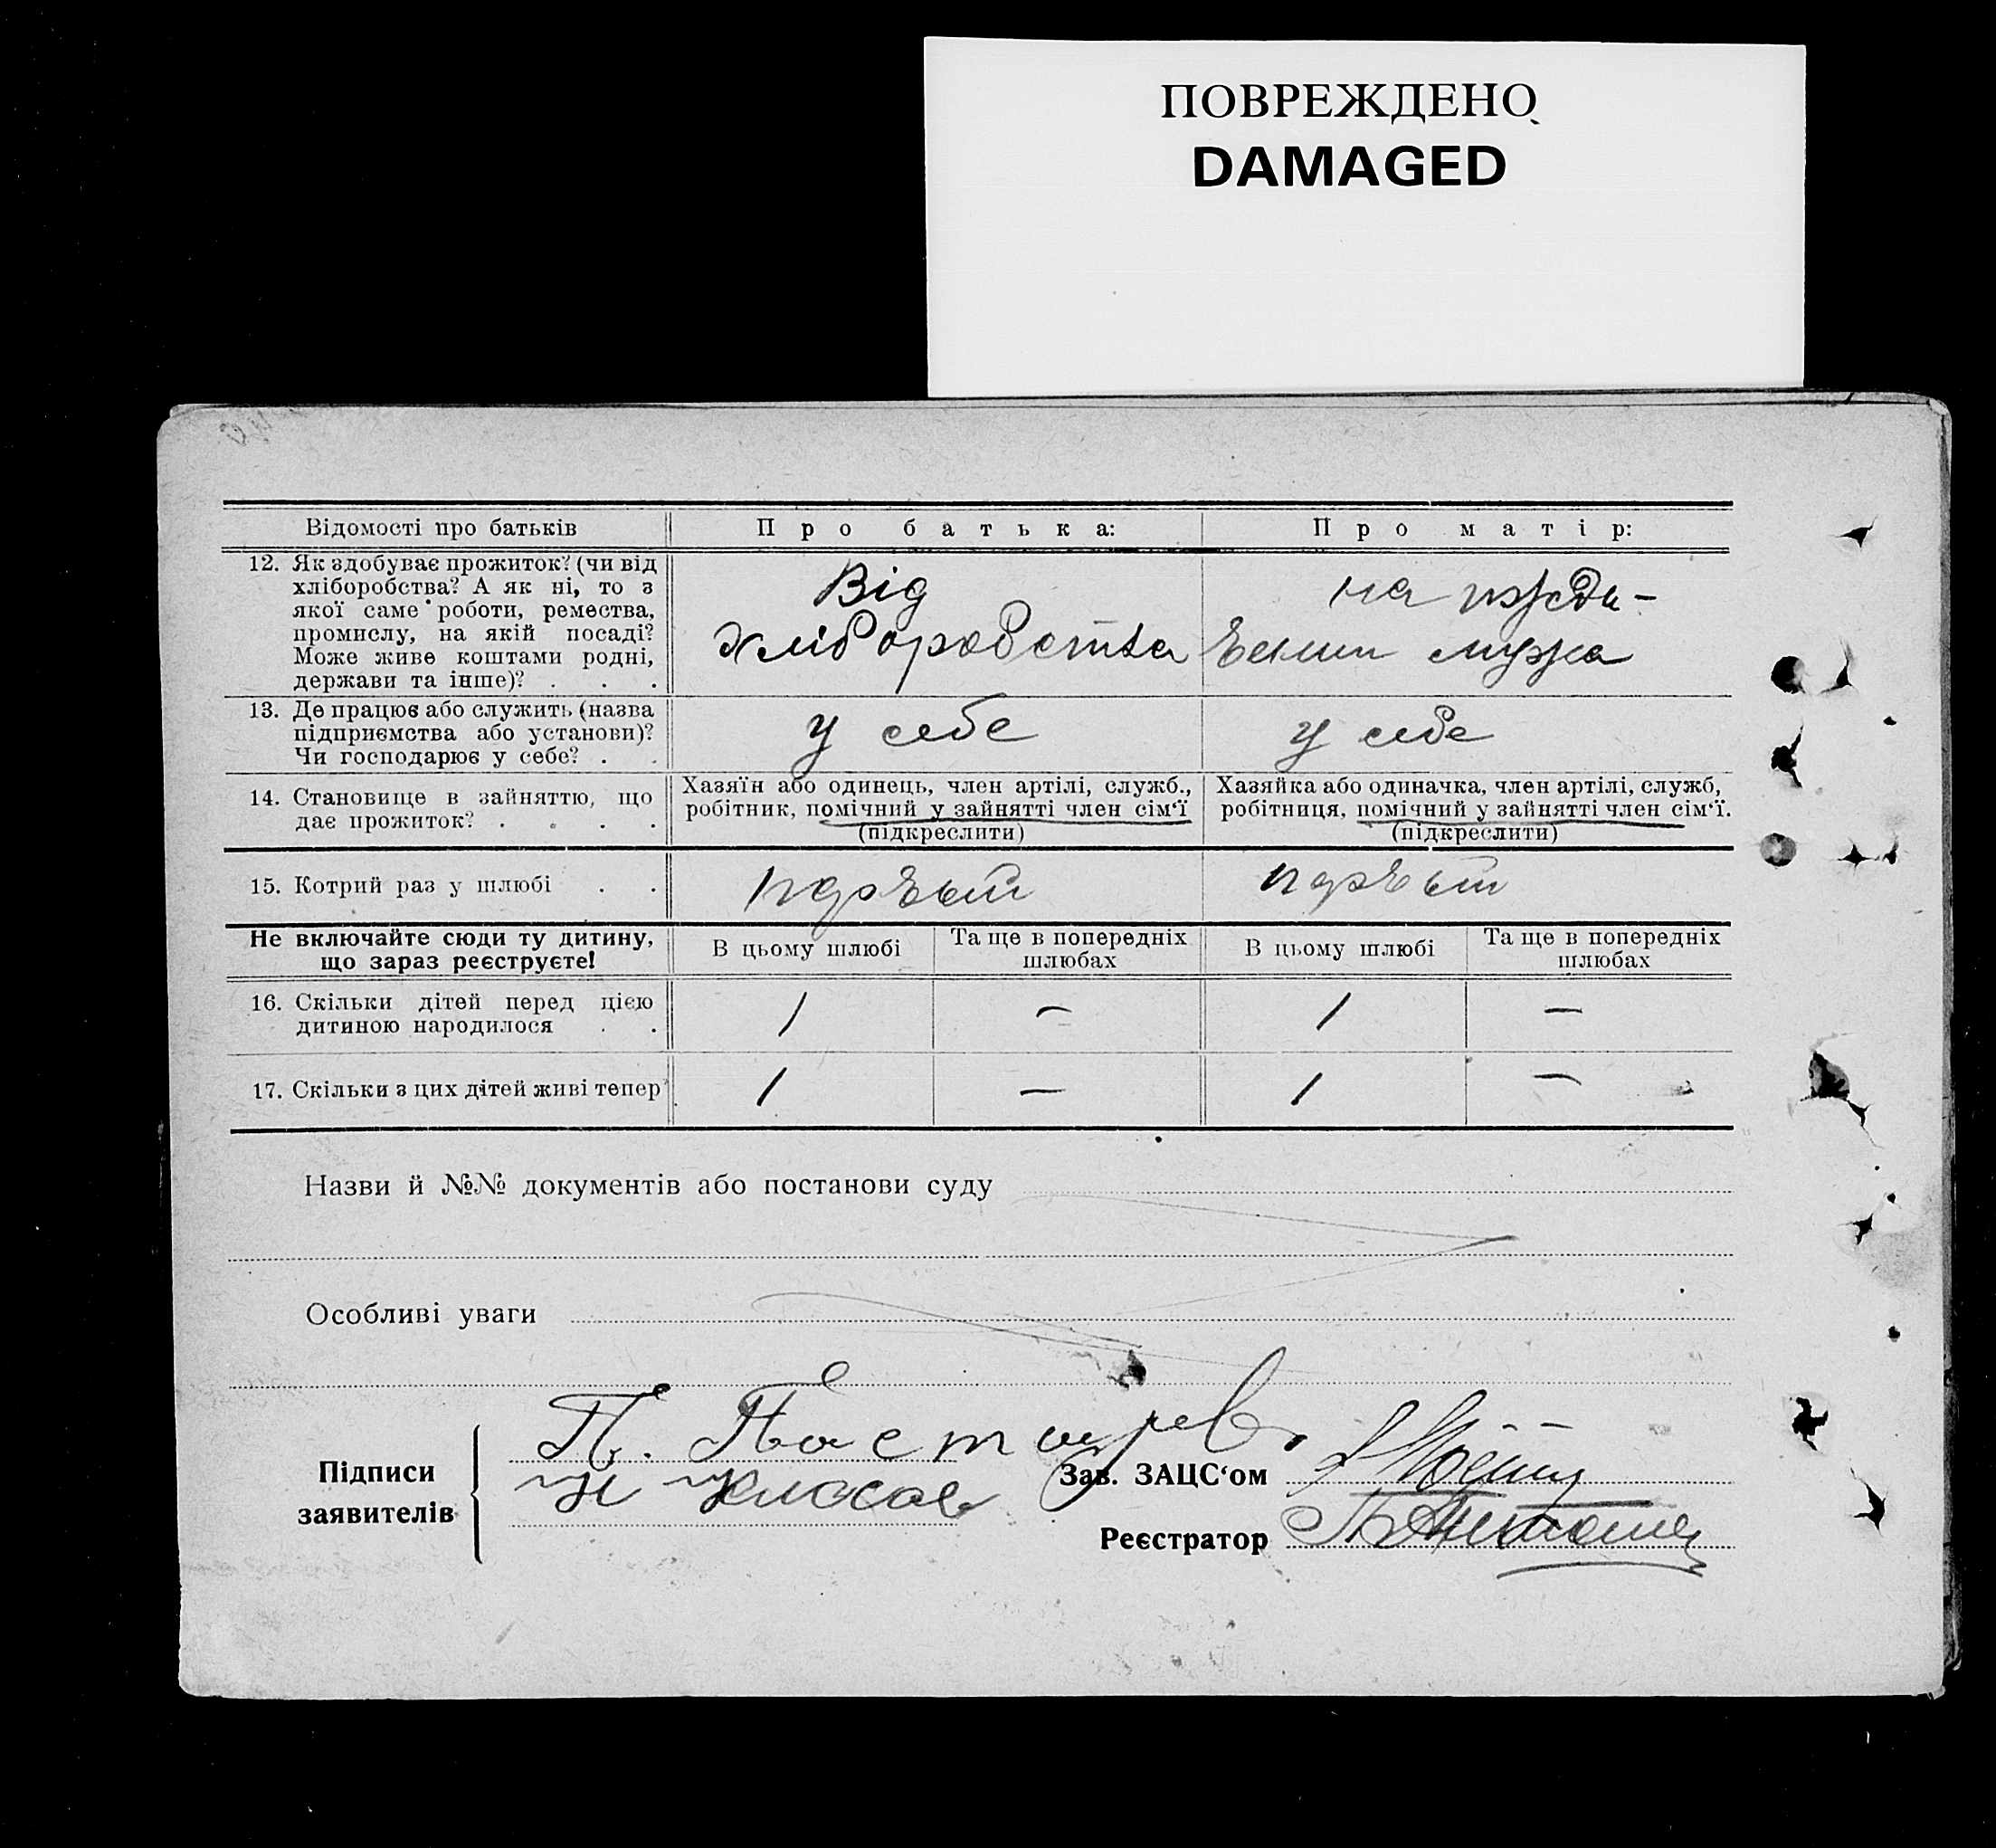 ПОВРЕЖДЕНО
DAMAGED
Відомості про батьків
Про батька:
Про матір:
12. Як здобуває прожиток? (чи від
хліборобства? А як ні, то з
якої саме роботи, ремества,
промислу, на якій посаді?
Може живе коштами родні,
держави та інше)? . . .
Від
хліборобства
на
мужа
13. Де працює або служить (назва
підприємства або установи)?
Чи господарює у себе? . .
у себе
у себе
14. Становище в зайняттю, що
дає прожиток? . . . .
Хазяїн або одинець, член артілі, служб.,
робітник, помічний у зайнятті член сім‘ї
(підкреслити)
Хазяйка або одиначка, член артілі, служб,
робітниця, помічний у зайнятті член сім‘ї.
(підкреслити)
15. Котрий раз у шлюбі . .
Не включайте сюди ту дитину,
що зараз реєструєте!
В цьому шлюбі
Та ще в попередніх
шлюбах
В цьому шлюбі
Та ще в попередніх
шлюбах
16. Скільки дітей перед цією
дитиною народилося . .
1 — 1 —
17. Скільки з цих дітей живі тепер
1 — 1 —
Назви й №№ документів або постанови суду
Особливі уваги
Підписи
заявителів
П.
Зав. ЗАЦС‘ом
Реєстратор